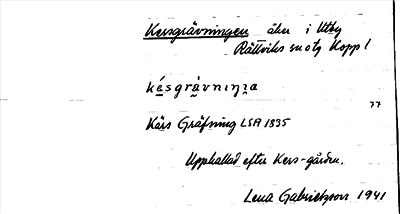 Kersgrävningen åker i Utby
Rättviks sn o tg Kopp l
késgrävniŋa
77
Kärs Gräfning LSA 1835
Uppkallad efter Kers-gården.
Lena Gabrielsson 1941